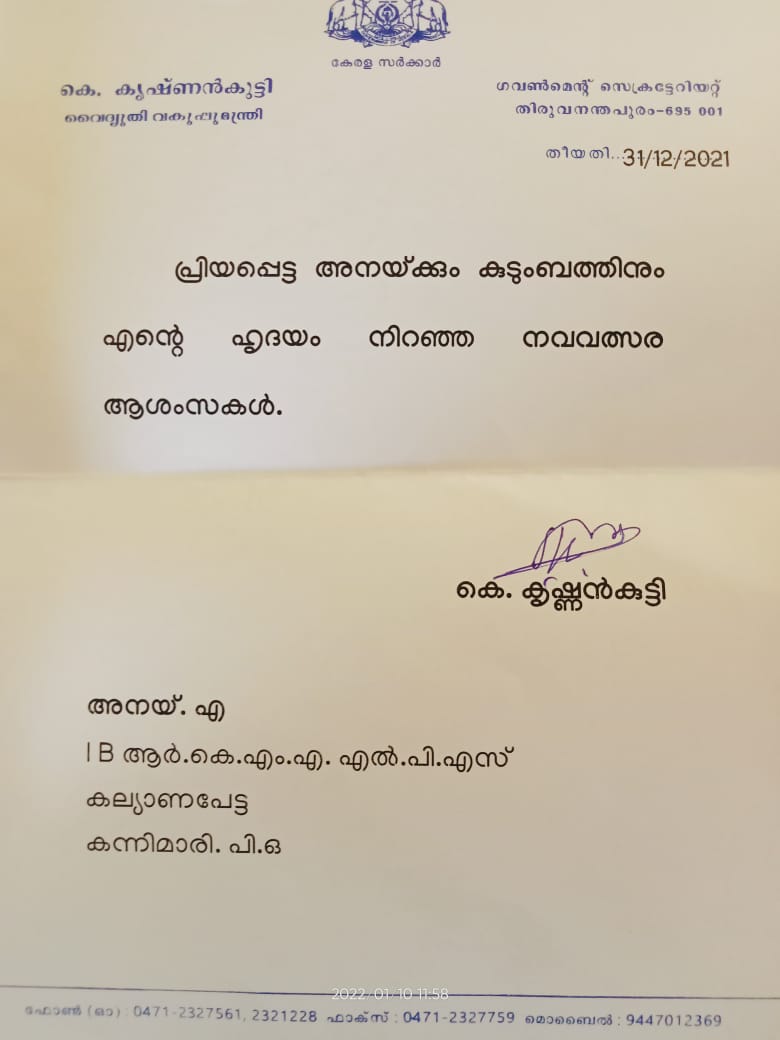 കേരള സർക്കാർ
കെ. കൃഷ്ണൻകുട്ടി
വൈദ്യുതി വകുപ്പുമന്ത്രി
ഗവൺമെന്റ് സെക്രട്ടേറിയറ്റ്
തിരുവനന്തപുരം-695 001
തീയതി...31/12/2021
പ്രിയപ്പെട്ട അനയ്ക്കും കുടുംബത്തിനും
എന്റെ ഹൃദയം നിറഞ്ഞ നവവത്സര
ആശംസകൾ.
കെ. കൃഷ്ണൻകുട്ടി
അനയ്. എ
I B ആർ.കെ.എം.എ. എൽ.പി.എസ്
കല്യാണപേട്ട
കന്നിമാരി. പി.ഒ
2022/01/10 11:58
ഫോൺ (ഓ) : 0471-2327561, 2321228 ഫാക്സ് : 0471-2327759 മൊബൈൽ : 9447012369